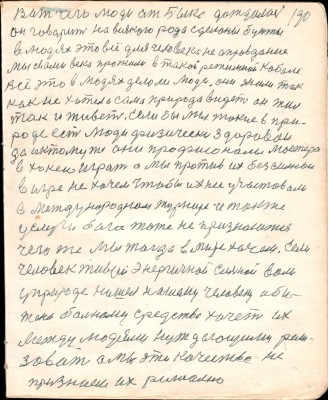 130
он говорит на всякого рода сделаны бунты
в людях это всё для человека не оправдание
мы сами века прожили в такой
всё это в людях делом люди, они жили так
как не хотела сама природа видет он жил
так и живет. Если бы мы такие в при-
роде ест люди физически здоровои
за их тому же они профессионалы мастера
в хокеи играт а мы против их безсилнои
в игре не хочем чтобы их не участвовали
в международном турнире и также
услуги бога тоже не признаются
чего же мы тогда в мире хочем. Если
человек живуй энергичнои силнои
природе нашел нашему человеку оби-
жено болному средство хочет их
между людями нуждающему реали-
зоват а мы эти качества не
признаем их реално